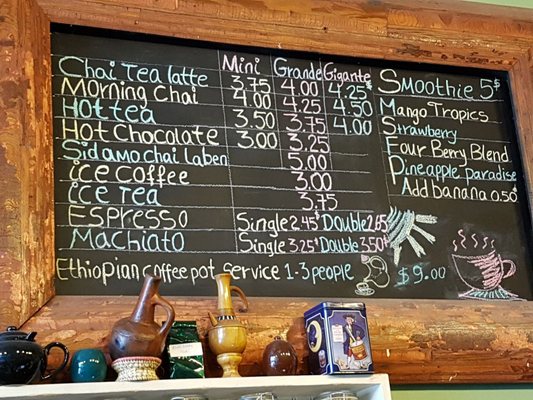 Mini Grande Gigante
Chai Tea latte 3.75 4.00 4.25$
Morning Chai 4.00 4.25 4.50
Hot tea 3.50 3.75 4.00
Hot Chocolate 3.00 3.25
Sidamo chai laben 5.00
ice coffee 3.00
ice tea 3.75
Espresso Single 2.45$ Double 2.65
Machiato Single 3.25$ Double 3.50$
Ethiopian coffee pot service 1-3 people $9.00
Smoothie 5$
Mango Tropics
Strawberry
Four Berry Blend
Pineapple Paradise
Add banana 0.50